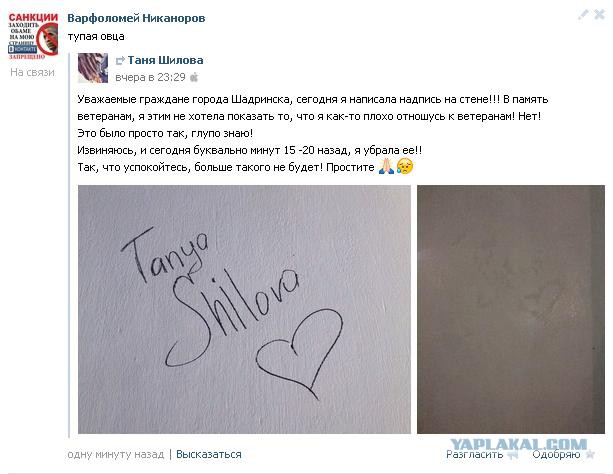 САНКЦИИ
ЗАХОДИТЬ
ОБАМЕ
НА МОЮ
СТРАНИЦУ
ВКОНТАКТЕ
ЗАПРЕЩЕНО
На связи
Варфоломей Никаноров
тупая овца
Таня Шилова
вчера в 23:29
Уважаемые граждане города Шадринска, сегодня я написала надпись на стене!!! В память
ветеранам, я этим не хотела показать то, что я как-то плохо отношусь к ветеранам! Нет!
Это было просто так, глупо знаю!
Извиняюсь, и сегодня буквально минут 15 -20 назад, я убрала ее!!
Так, что успокойтесь, больше такого не будет! Простите 🙏😥
Tanya
Shilova
одну минуту назад | Высказаться
Разгласить
Одобряю
YAPLAKAL.COM